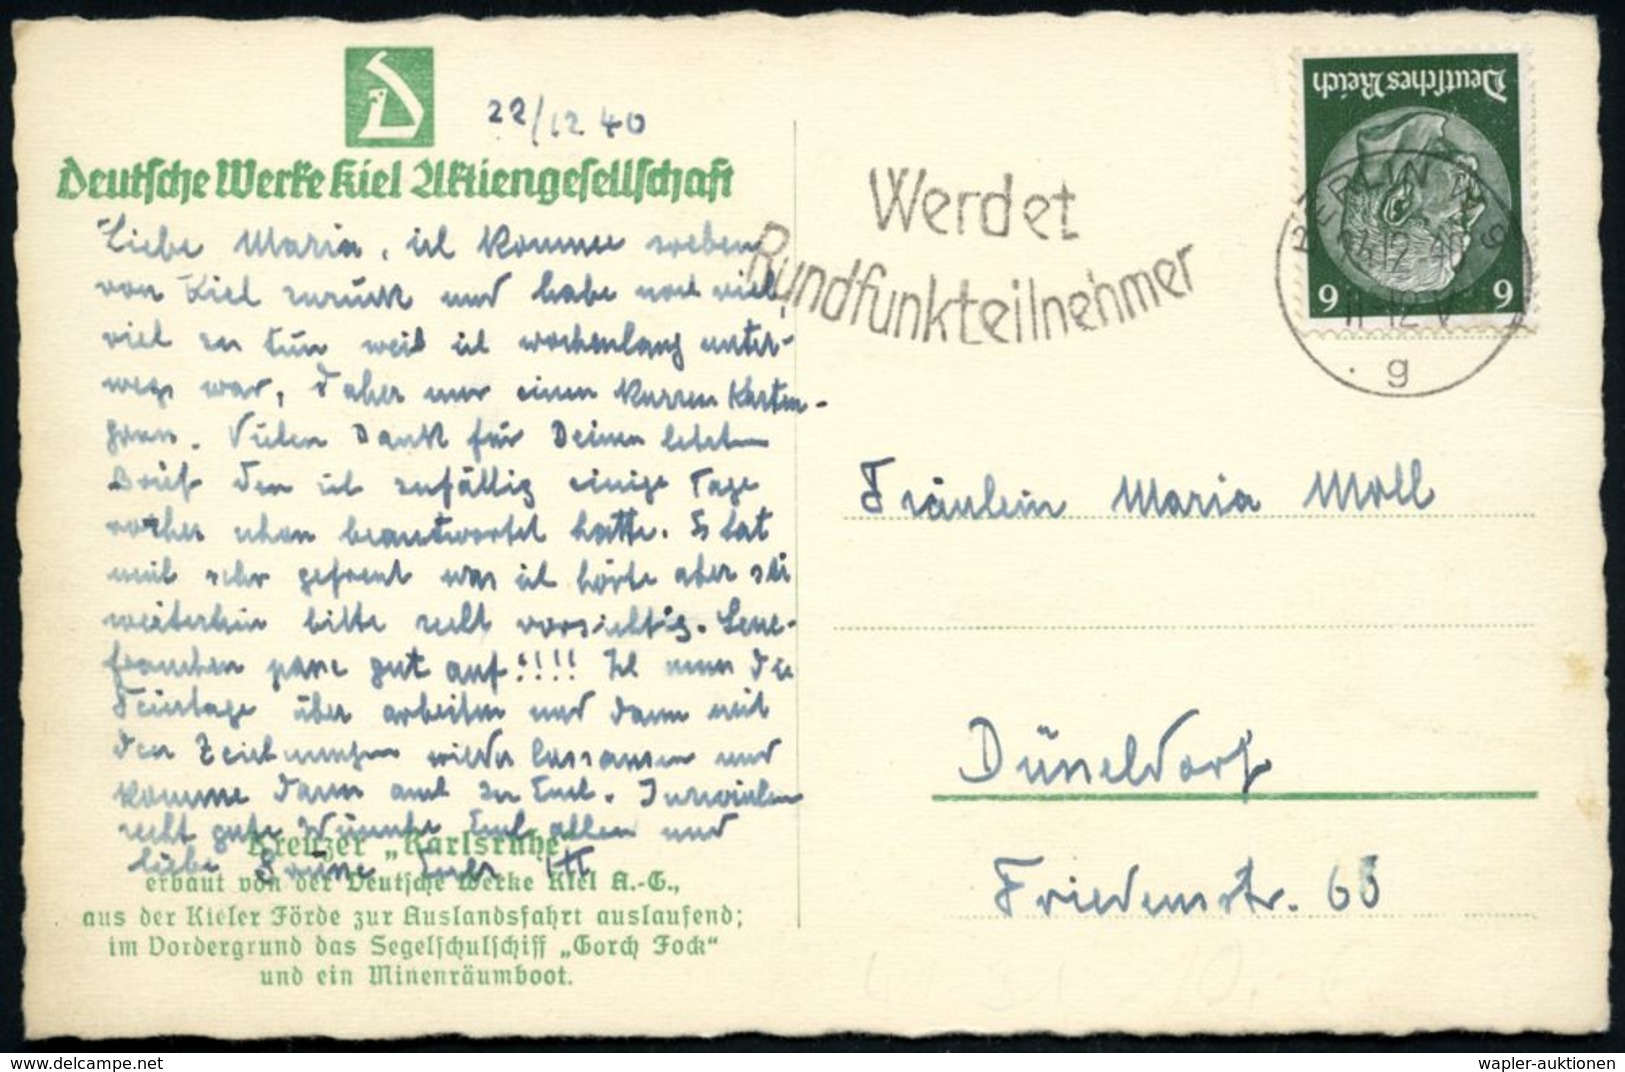 22/12 40
Deutsche Werke Kiel Aktiengesellschaft
Liebe Maria, ich komme soeben
von Kiel zurück und habe noch viel
viel zu tun weil ich wochenlang unter-
wegs war, daher nur einen kurzen Karten-
gruss. Vielen Dank für Deinen letzten
Brief den ich zufällig einige Tage
vorher schon beantwortet hatte. Es hat
mich sehr gefreut was ich hörte aber sei
weiterhin bitte recht vorsichtig. Lene-
frauchen passe gut auf!!!! Ich muss die
Feiertage über arbeiten und dann mit
den Zeichnungen wieder lossausen und
komme dann auch zu Euch. Inzwischen
recht gute Wünsche Euch allen und
liebe Grüsse Euer
Kreuzer „Karlsruhe“
erbaut von der Deutsche Werke Kiel A.-G.,
aus der Kieler Förde zur Auslandsfahrt auslaufend;
im Vordergrund das Segelschulschiff „Gorch Fock“
und ein Minenräumboot.
Werdet
Rundfunkteilnehmer
Deutsches Reich
6 6
BERLIN
12.40
11-12 V
g
Fräulein Maria Moll
Düsseldorf
Friedenstr. 63
Hersteller unbekannt
wapler-auktionen